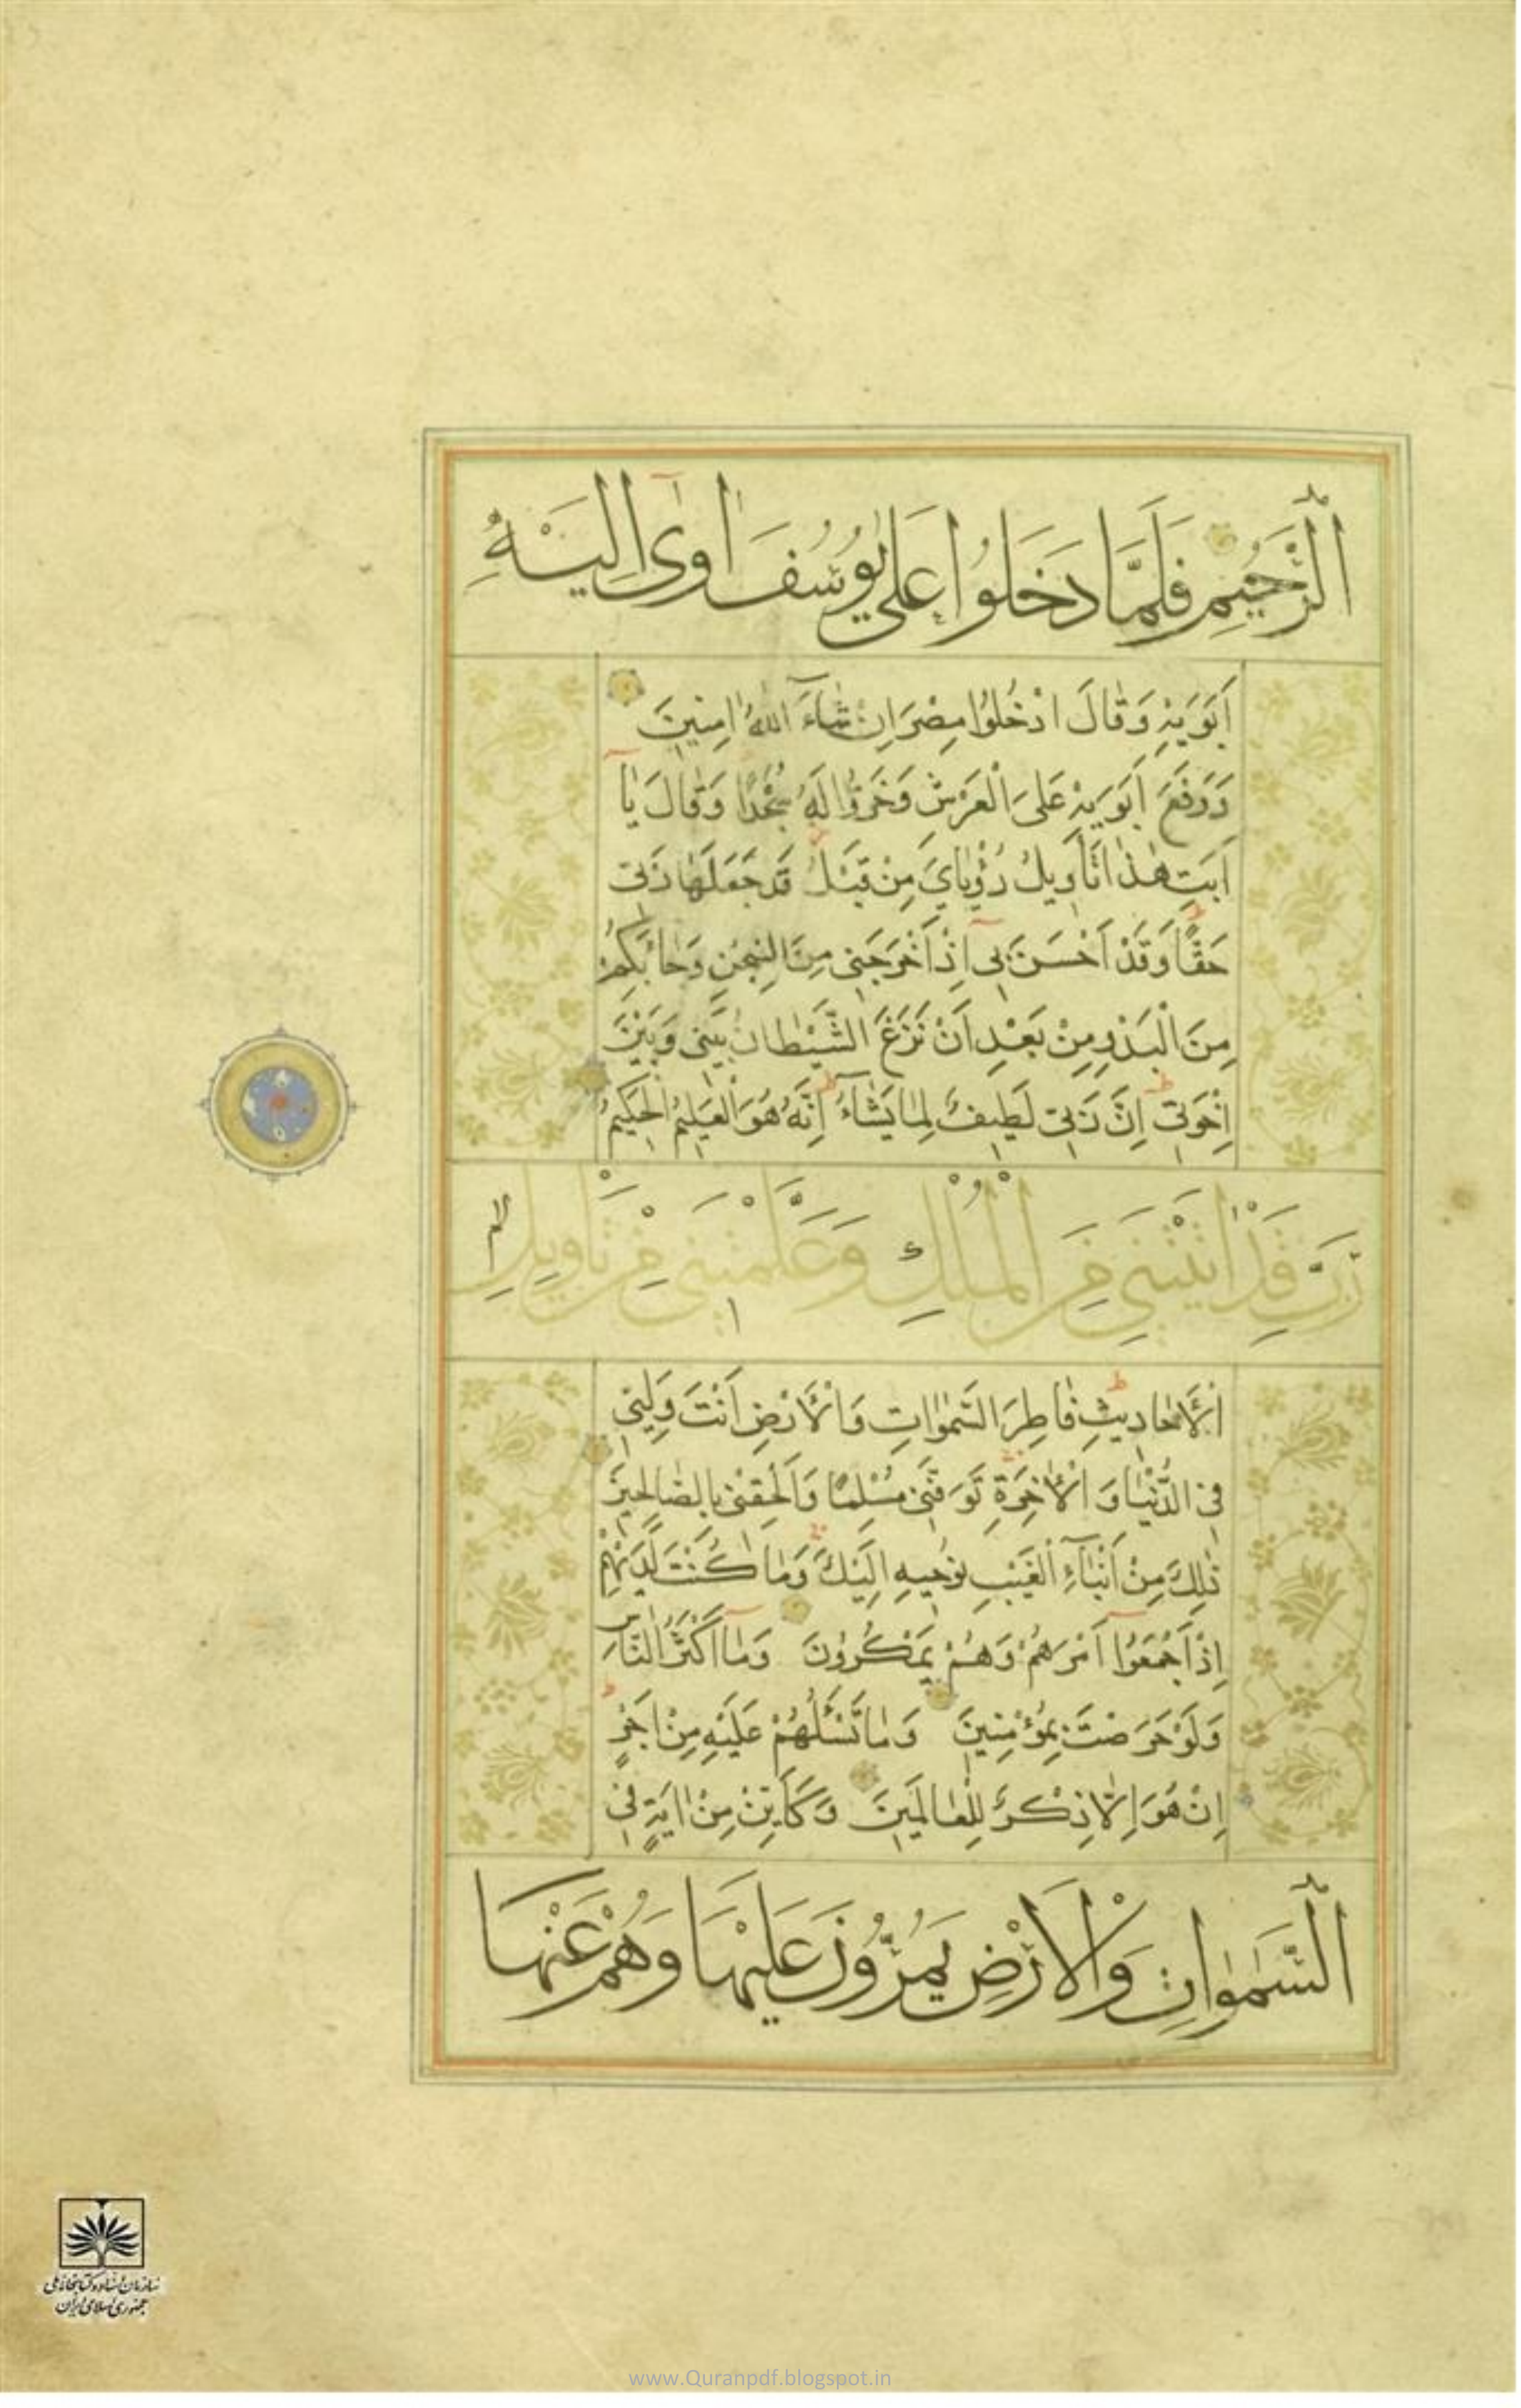 الرَّحِيمُ فَلَمَّا دَخَلُوا عَلَىٰ يُوسُفَ اٰوٰىٓ اِلَيْهِ
اَبَوَيْهِ وَقَالَ ادْخُلُوا مِصْرَ اِنْ شَٓاءَ اللّٰهُ اٰمِنِينَ
وَرَفَعَ اَبَوَيْهِ عَلَى الْعَرْشِ وَخَرُّوا لَهُ سُجَّدًا وَقَالَ يَٓا
اَبَتِ هٰذَا تَأْوِيلُ رُؤْيَايَ مِنْ قَبْلُ قَدْ جَعَلَهَا رَبّى
حَقًّا وَقَدْ اَحْسَنَ بىٓ اِذْ اَخْرَجَنى مِنَ السِّجْنِ وَجَٓاءَ بِكُمْ
مِنَ الْبَدْوِ مِنْ بَعْدِ اَنْ نَزَغَ الشَّيْطَانُ بَيْنى وَبَيْنَ
اِخْوَتى اِنَّ رَبّى لَطِيفٌ لِمَا يَشَٓاءُ اِنَّهُ هُوَ الْعَلِيمُ الْحَكِيمُ
رَبِّ قَدْ اٰتَيْتَنى مِنَ الْمُلْكِ وَعَلَّمْتَنى مِنْ تَأْوِيلِ
الْاَحَادِيثِ فَاطِرَ السَّمٰوَاتِ وَالْاَرْضِ اَنْتَ وَلِيّى
فِى الدُّنْيَا وَالْاٰخِرَةِ تَوَفَّنى مُسْلِمًا وَاَلْحِقْنى بِالصَّالِحِينَ
ذٰلِكَ مِنْ اَنْبَٓاءِ الْغَيْبِ نُوحِيهِ اِلَيْكَ وَمَا كُنْتَ لَدَيْهِمْ
اِذْ اَجْمَعُٓوا اَمْرَهُمْ وَهُمْ يَمْكُرُونَ وَمَٓا اَكْثَرُ النَّاسِ
وَلَوْ حَرَصْتَ بِمُؤْمِنِينَ وَمَا تَسْـَٔلُهُمْ عَلَيْهِ مِنْ اَجْرٍ
اِنْ هُوَ اِلَّا ذِكْرٌ لِلْعَالَمِينَ وَكَاَيِّنْ مِنْ اٰيَةٍ فِى
السَّمٰوَاتِ وَالْاَرْضِ يَمُرُّونَ عَلَيْهَا وَهُمْ عَنْهَا
سازمان اسناد و کتابخانه ملی
جمهوری اسلامی ایران
www.Quranpdf.blogspot.in